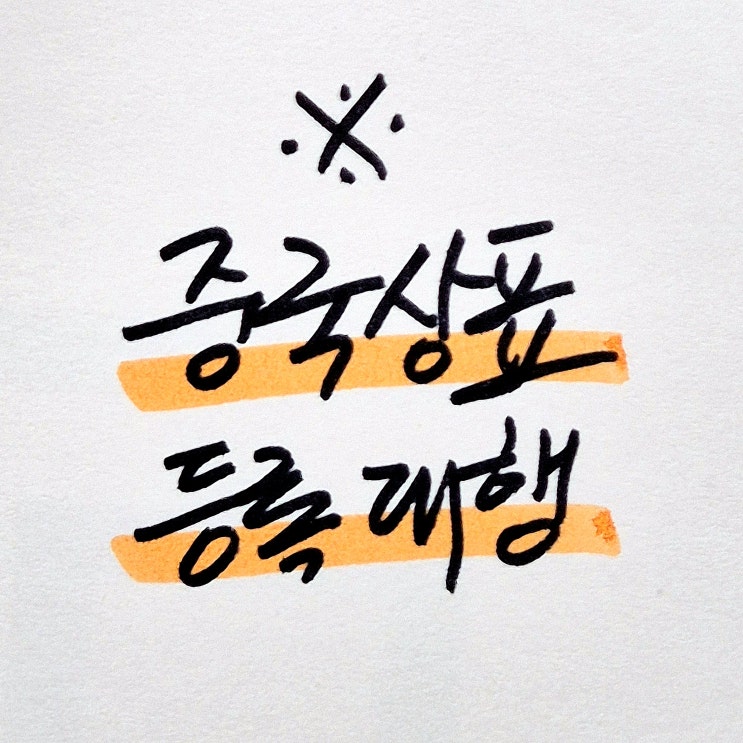 ※
중국상표
등록 대행